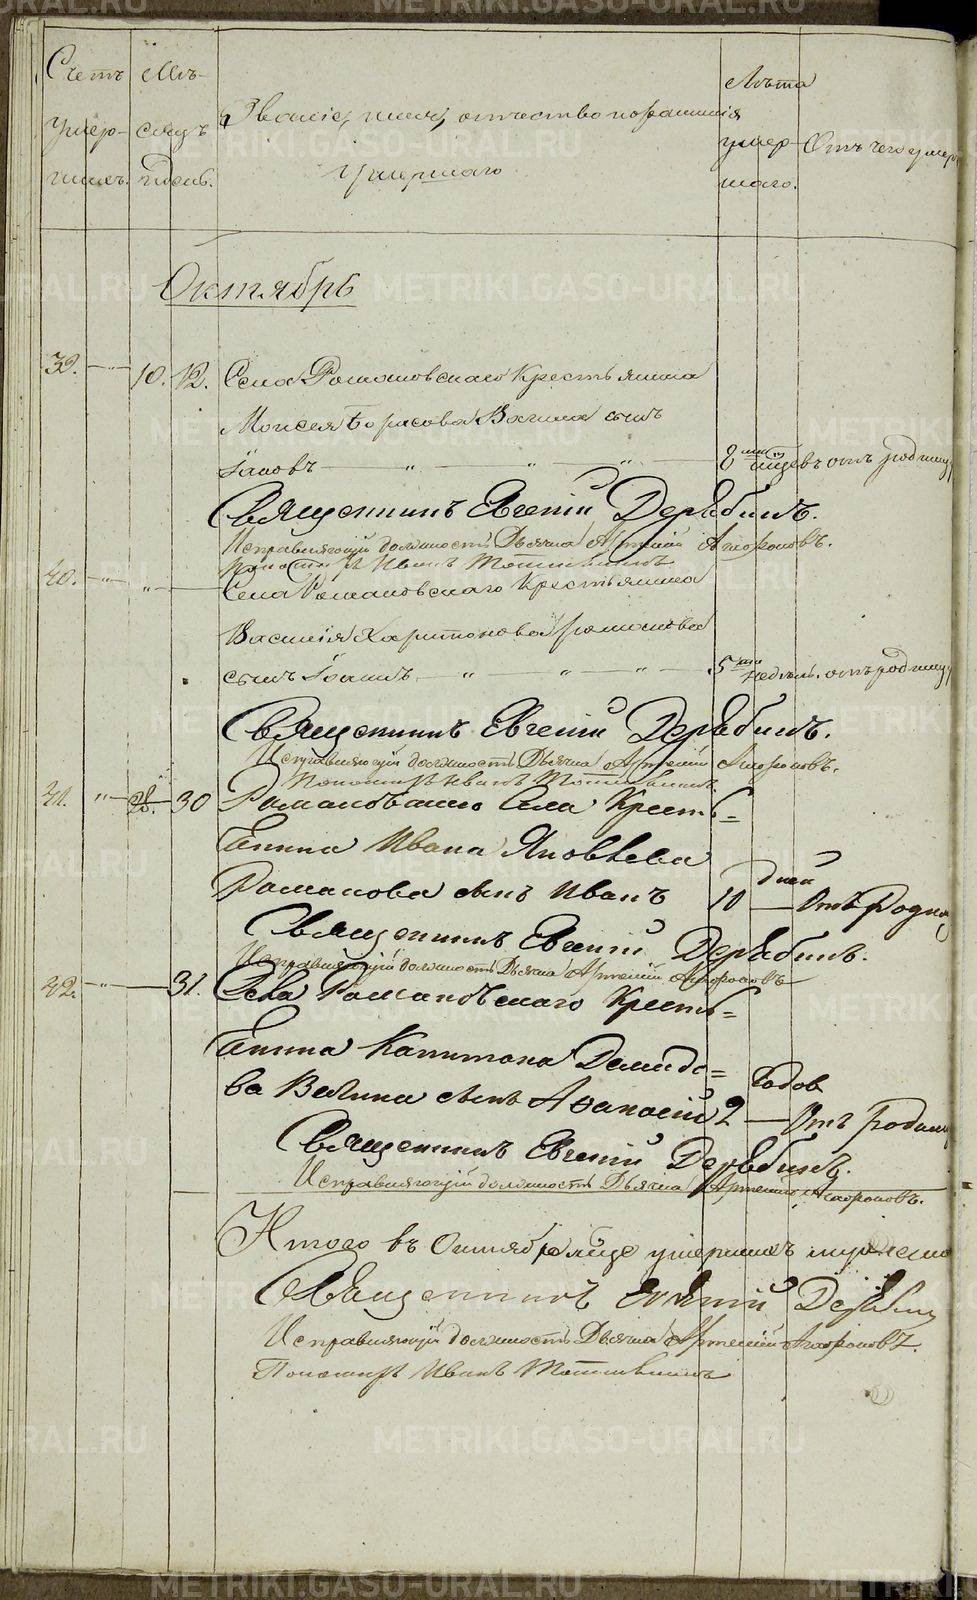 Счетъ умер- шихъ.
Мѣ- сяцъ и день.
Званіе, имя, отчество и фамилія умершаго
Лѣта умер- шаго.
Отъ чего умеръ
Октябрь
39. 10. 12. Села Романовскаго Крестьянина
Моисея Борисова Вагина сынъ
Іаковъ 8 мѣсяцевъ отъ родимцу
Священникъ Евгеній Дерябинъ.
Исправляющій должность Дьячка Артемій Агафоновъ.
Пономарь Иванъ
40. Села Романовскаго Крестьянина
Василія Харитонова Романова
сынъ Іоаннъ 5 недѣль. отъ родимцу
Священникъ Евгеній Дерябинъ.
Исправляющій должность Дьячка Артемій Агафоновъ.
Пономарь Иванъ
41. 28. 30 Романовскаго Села Кресть=
янина Ивана Яковлева
Романова сынъ Иванъ 10 дней Отъ Родим
Священникъ Евгеній Дерябинъ.
Исправляющій должность Дьячка Артемій Агафоновъ
42. 31. Села Романовскаго Кресть=
янина Капитона Демидо=
ва Вагина сынъ Афанасій 2 Годов Отъ родим
Священникъ Евгеній Дерябинъ.
Исправляющій должность Дьячка Артемій Агафоновъ.
Итого въ Октябрѣ умершихъ мужеска
Священникъ Евгеній Дерябин
Исправляющій должность Дьячка Артемій Агафоновъ.
Пономарь Иванъ
METRIKI.GASO-URAL.RU